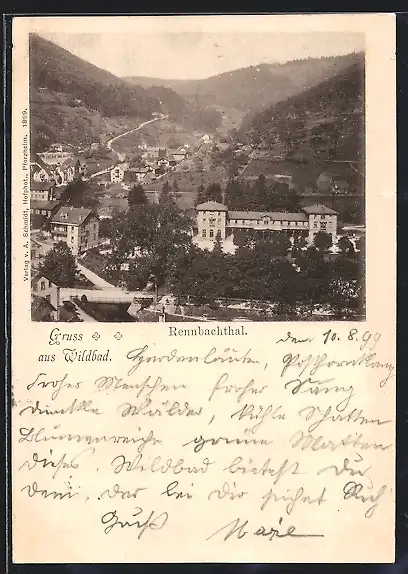 Verlag v. A. Schmidt, Hofphot., Pforzheim. 1899.
Gruss
aus Wildbad.
Rennbachthal.
den 10.8.99
Heerdenläute, Posthornklang
Froher Menschen froher Sang
Dunkle Wälder, kühle Schatten
Blumenreiche grüne Matten
Dieses, Wildbad bietest Du
Dem, der bei Dir suchet Ruh
Gruß Marie